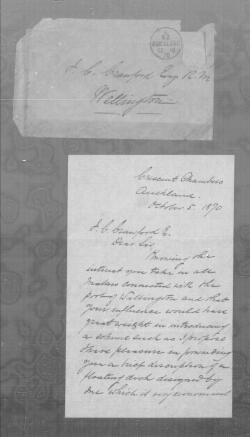 AUCKLAND
J. C. Crawford Esq R.M.
Wellington
Crescent Chambers
Auckland.
October 5 1870
J. C. Crawford Esq.
Dear Sir,
Knowing the
interest you take in all
matters connected with the
port of Wellington and that
your influence would have
great weight in introducing
a scheme such as I propose
I have pleasure in forwarding
you a brief description of a
floating dock designed by
me which